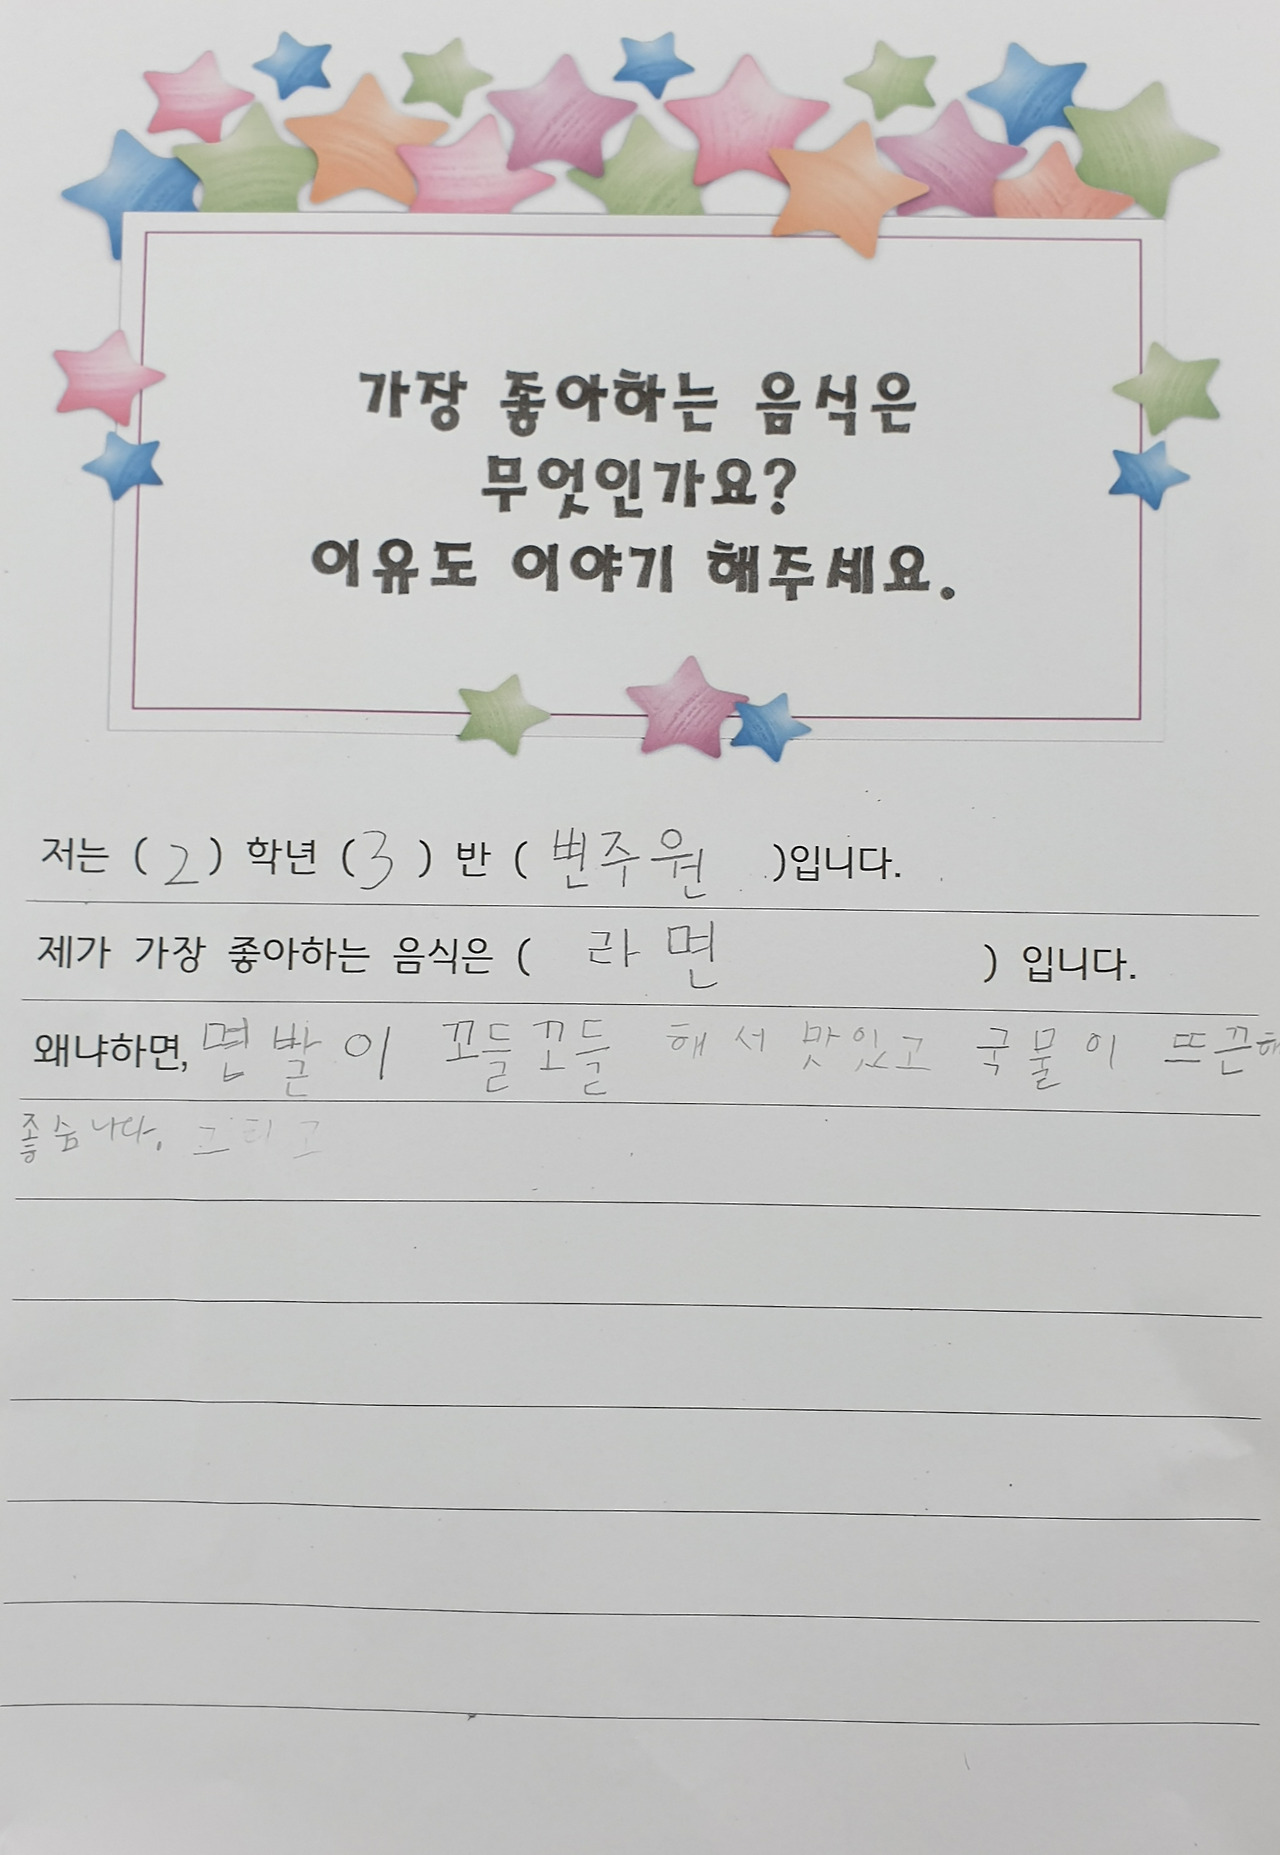 가장 좋아하는 음식은
무엇인가요?
이유도 이야기 해주세요.
저는 (2) 학년 (3) 반 ( 변주원 )입니다.
제가 가장 좋아하는 음식은 ( 라면 ) 입니다.
왜냐하면, 면발이 꼬들꼬들 해서 맛있고 국물이 뜨끈해
좋습니다. 그리고